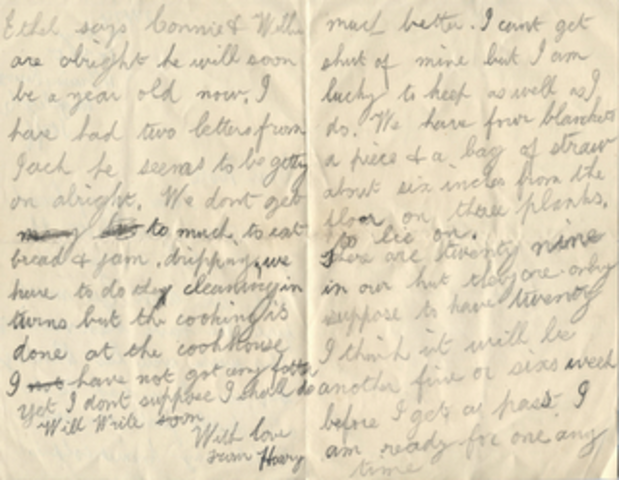 Ethel says Connie & Willie
are alright he will soon
be a year old now. I
have had two letters from
Jack he seems to be getting
on alright. We dont get
to much to eat
bread & jam, dripping, we
have to do the cleaning in
turns but the cooking is
done at the cookhouse
I not have not got any fatter
yet I dont suppose I shall do
Will Write soon
With love
from Harry
much better. I cant get
shut of mine but I am
lucky to keep as well as I
do. We have four blankets
a piece & a bag of straw
about six inches from the
floor on three planks,
to lie on.
there are twenty nine
in our hut they are only
suppose to have twenty
I think it will be
another five or six week
before I gets a pass. I
am ready for one any
time